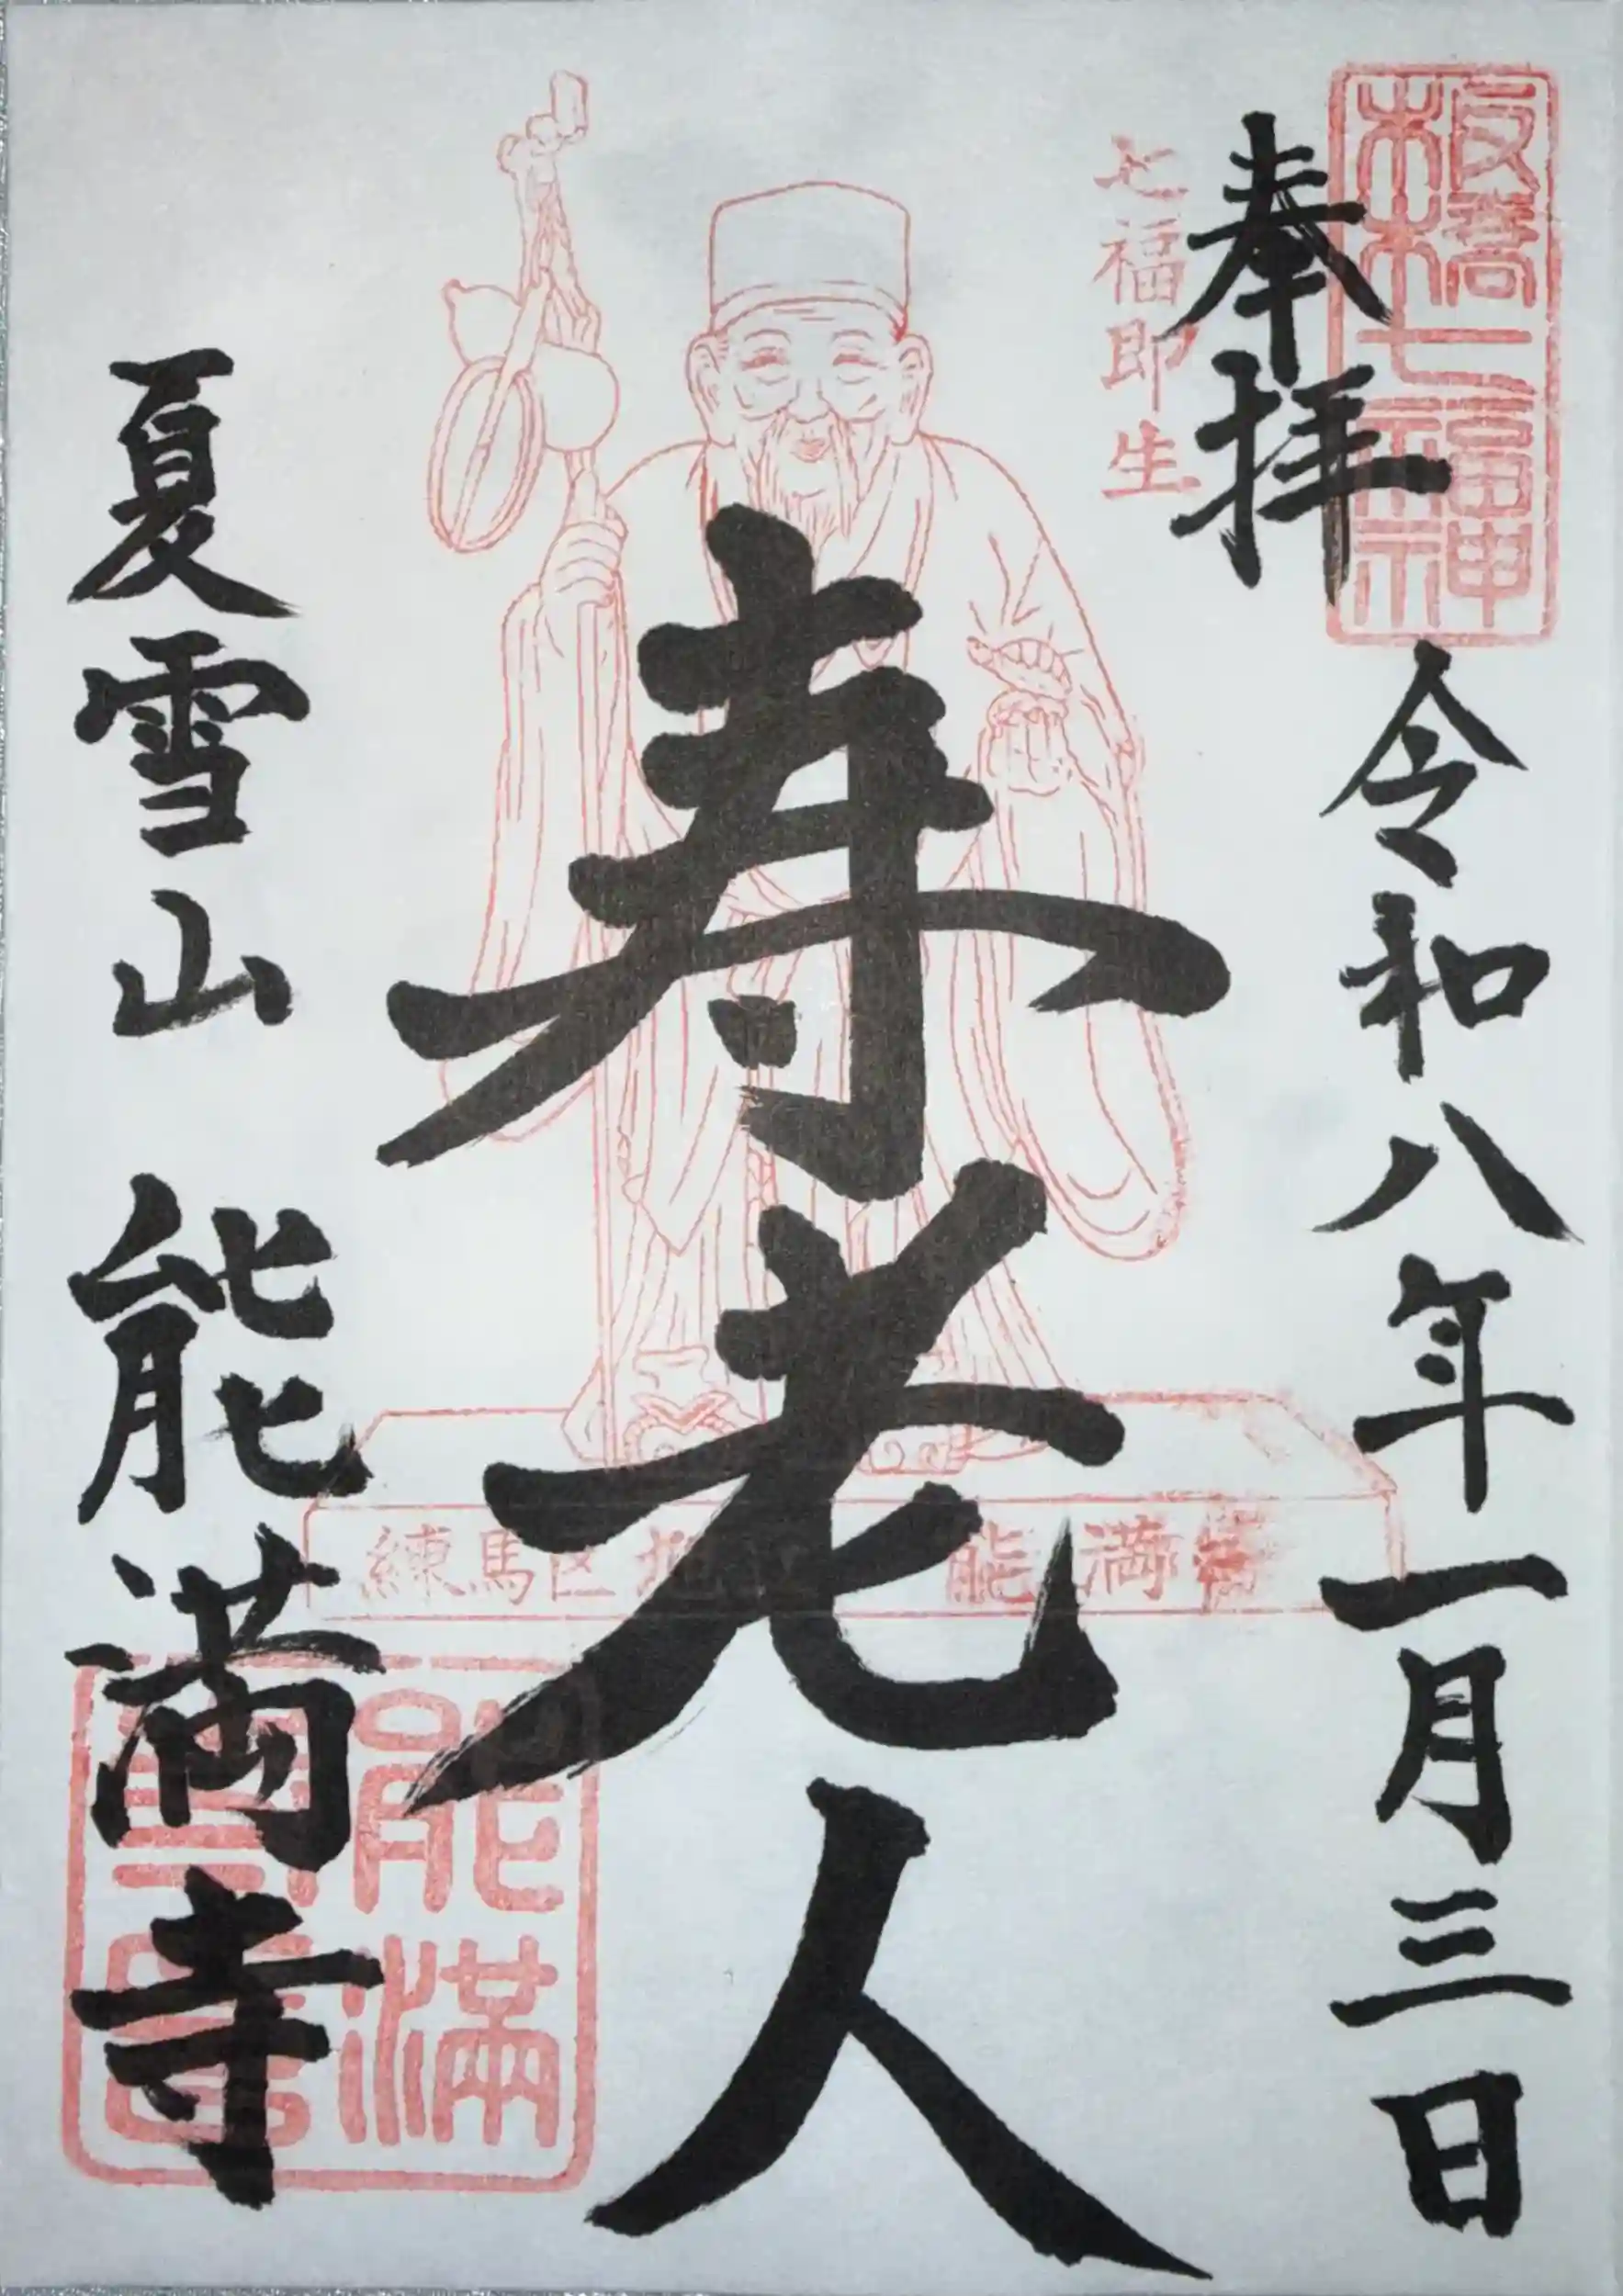 板橋七福神
奉拝
令和八年一月三日
七福即生
寿老人
練馬区 能満寺
夏雪山 能満寺
能満